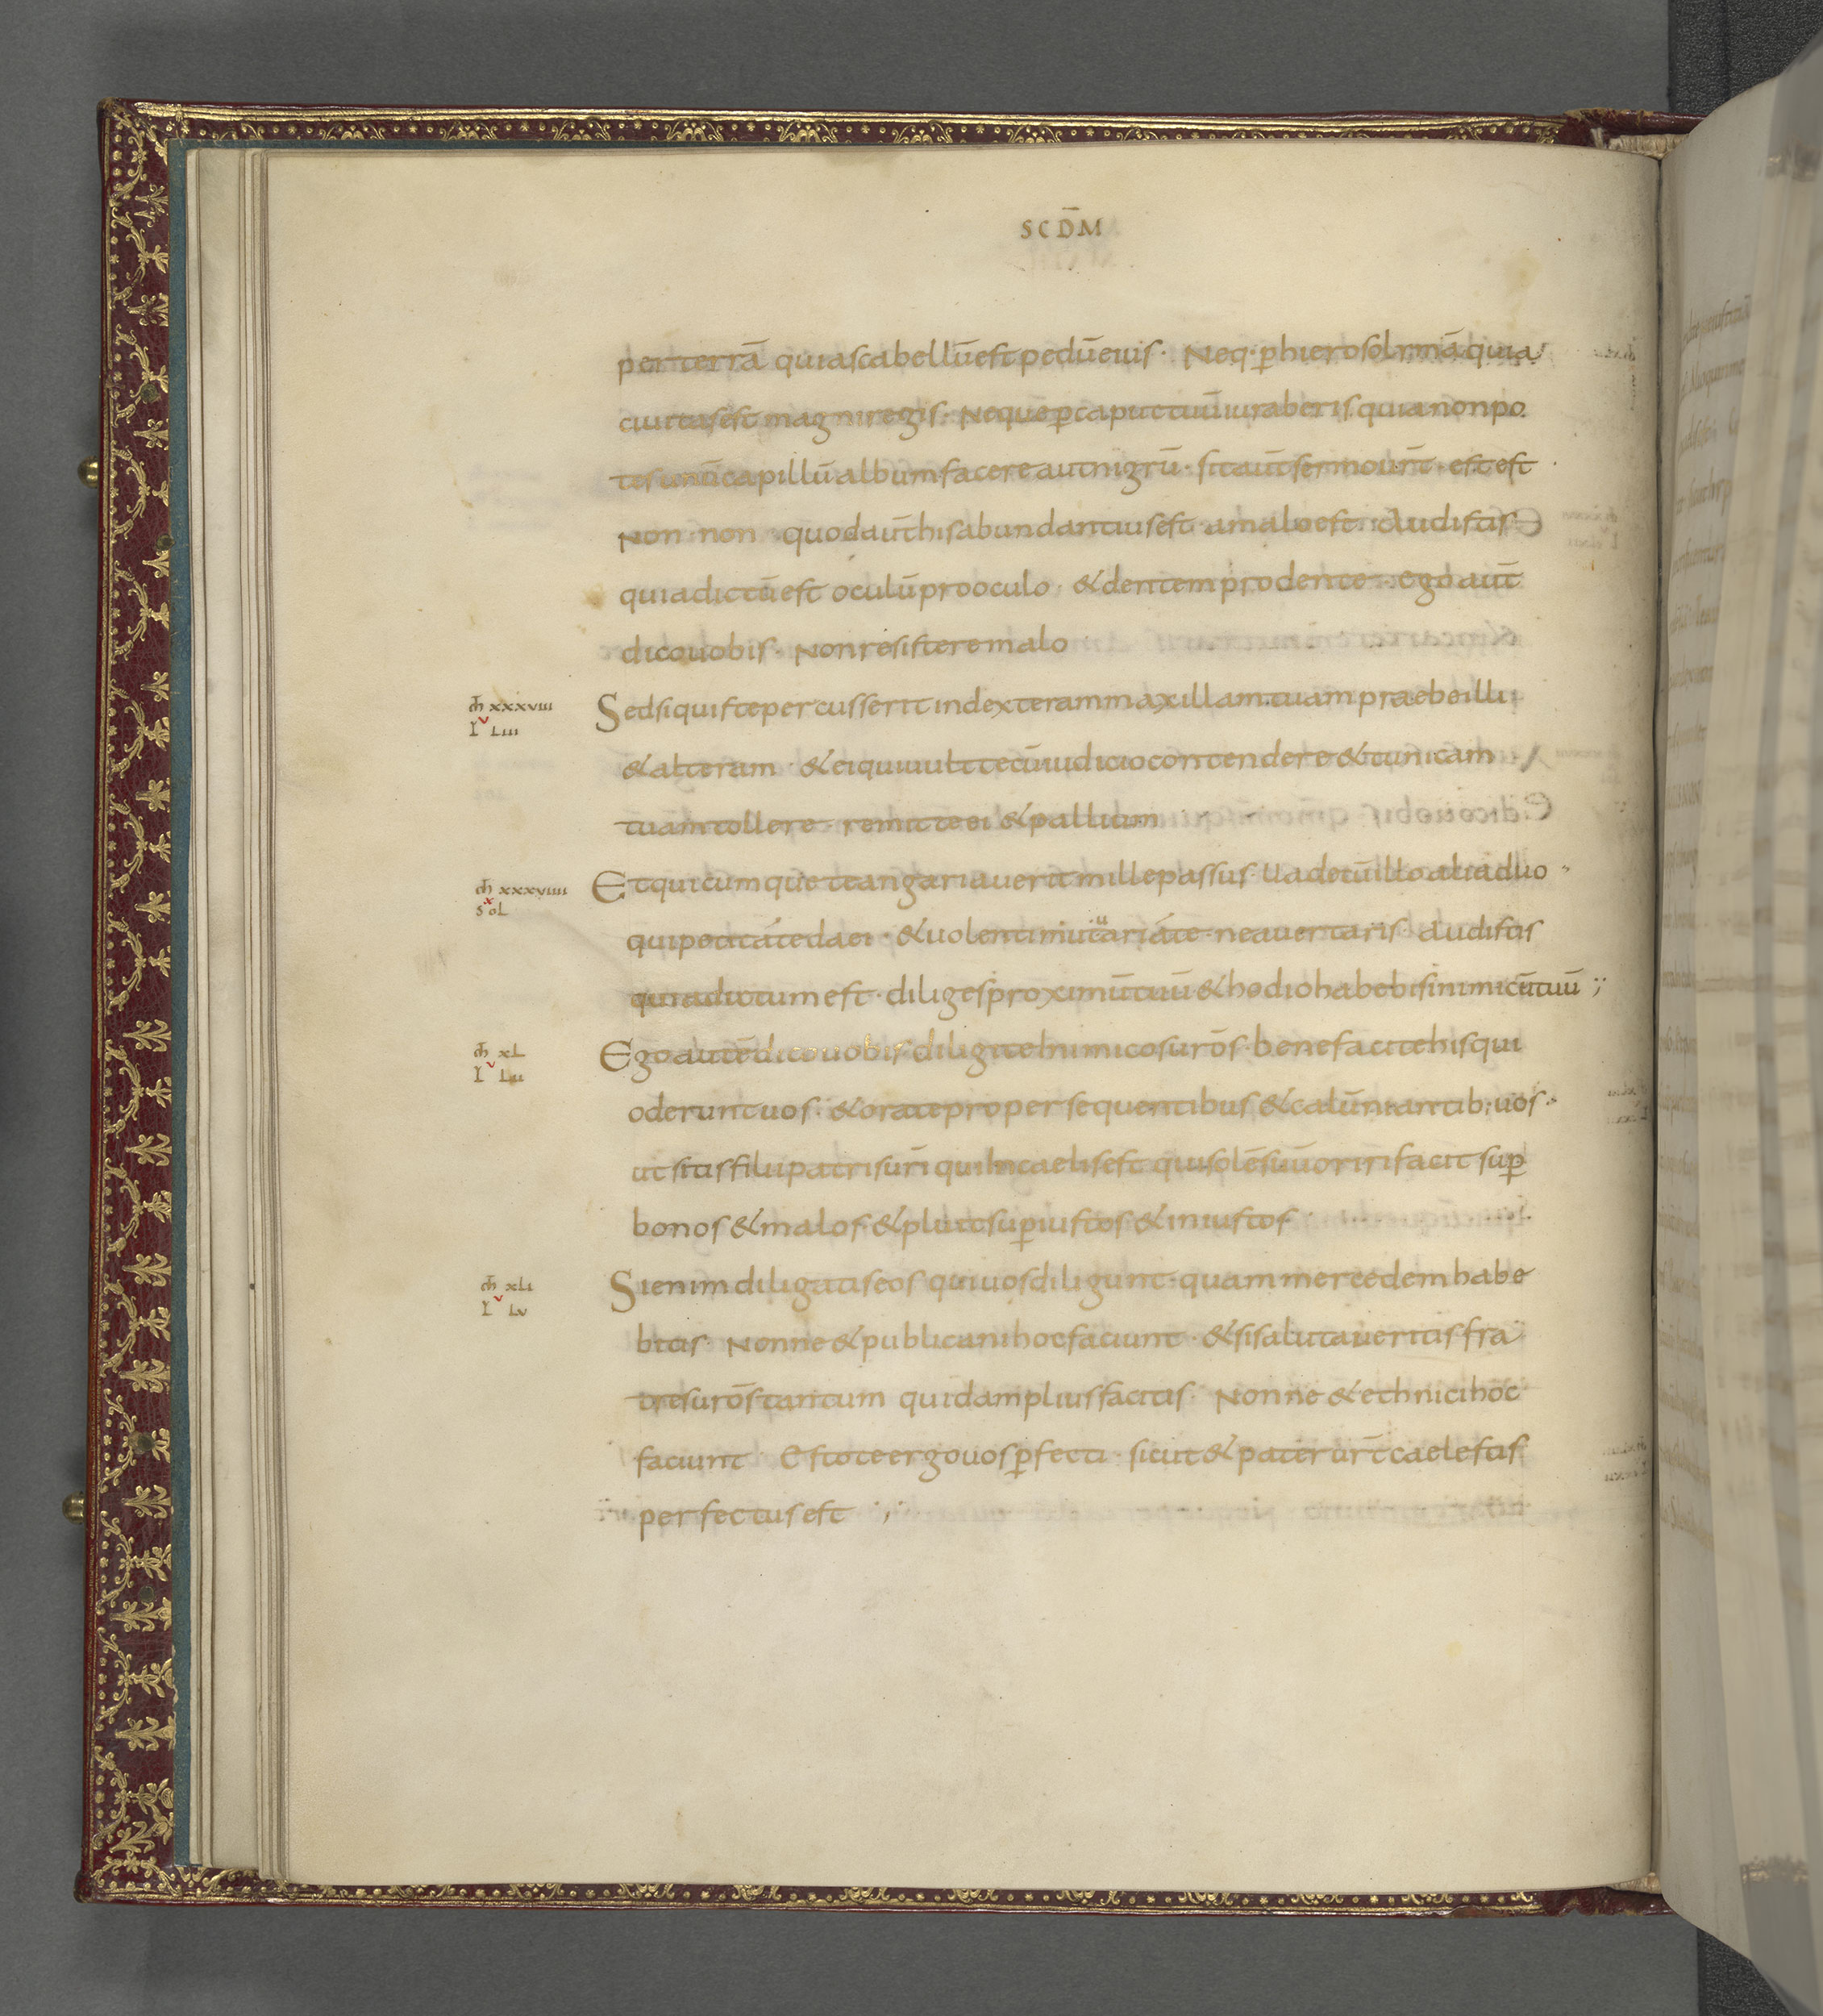 SCD̄M
per terrā quia scabellū est pedū eius · Neq · p̄ hierosolimā quia
ciuitas est magni regis · Neque p̄ caput tuū iuraberis quia non po
tes unū capillū album facere aut nigrū · sit aūt sermo ur̄t · est est
Non · non · quod aūt his abundantius est · a malo est · Audistis
quia dictū est oculū pro oculo · & dentem pro dente · ego aūt
dico uobis · Non resistere malo
m̄ xxxviii
L v Liii
Sed si quis te percusserit in dexteram maxillam tuam praebe illi
& alteram · & ei qui uult tecū iudicio contendere & tunicam
tuam tollere · remitte ei & pallium
m̄ xxxviiii
s x oL
Et quicumque te angariauerit mille passus · Uade cū illo alia duo
qui petit a te da ei · & uolenti mutuari a te · ne auertaris · audistis
quia dictum est · diliges proximū tuū & hodio habebis inimicū tuū ;
m̄ xL
L v Lii
Ego autē dico uobis · diligite inimicos urōs · benefacite his qui
oderunt uos · & orate pro persequentibus & calūniantib; uos ·
ut sitis filii patris ur̄i qui in caelis est qui solē suū oriri facit sup̄
bonos & malos · & pluit sup̄ iustos & iniustos
m̄ xLi
L v Lv
Si enim diligatis eos qui uos diligunt · quam mercedem habe
bitis · Nonne & publicani hoc faciunt · & si salutaueritis fra
tres urōs tantum quid amplius facitis · Nonne & ethnici hoc
faciunt · Estote ergo uos p̄fecti · sicut & pater ur̄t caelestis
perfectus est ·;